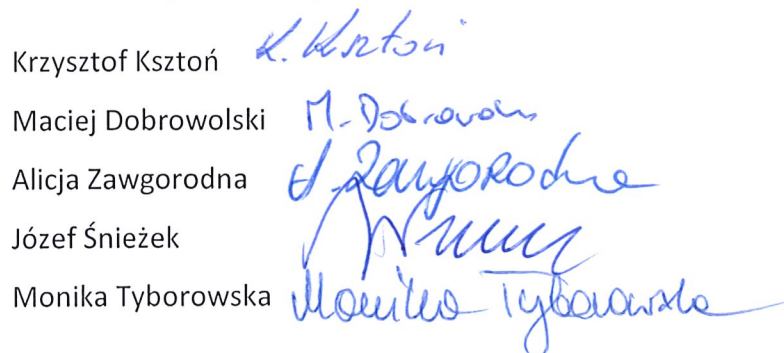 Krzysztof Ksztoń K. Ksztoń
Maciej Dobrowolski M. Dobrowols
Alicja Zawgorodna A. Zawgorodna
Józef Śnieżek
Monika Tyborowska Monika Tyborowska